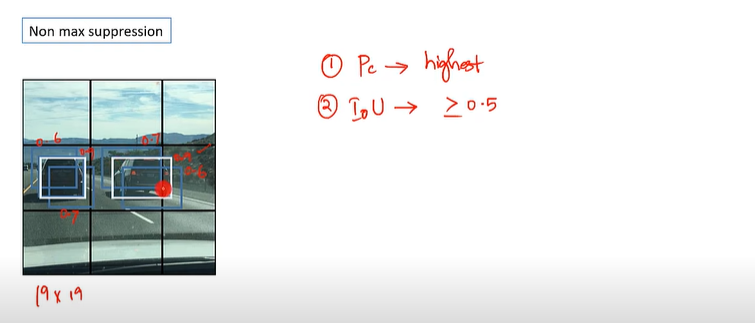 Non max suppression
① Pc → highest
② IoU → ≥ 0.5
0.6
0.7
0.9
0.9
0.6
0.7
19 x 19